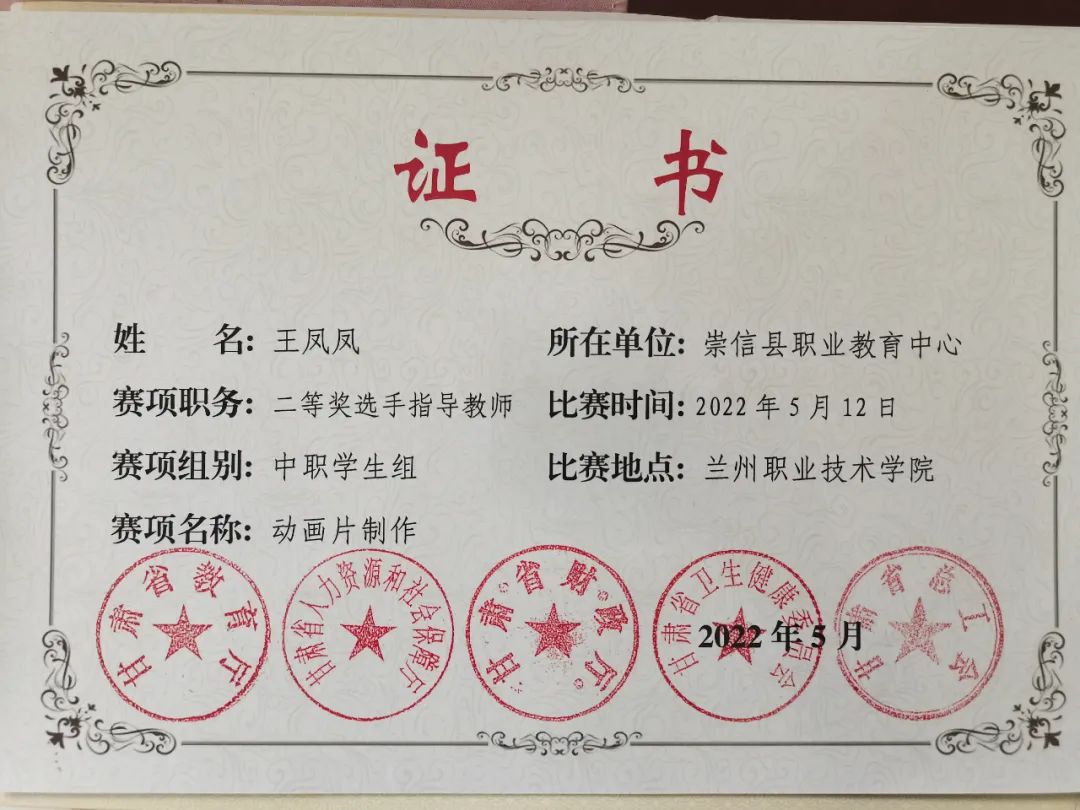 证 书
姓 名: 王凤凤 所在单位: 崇信县职业教育中心
赛项职务: 二等奖选手指导教师 比赛时间: 2022年5月12日
赛项组别: 中职学生组 比赛地点: 兰州职业技术学院
赛项名称: 动画片制作
甘肃省教育厅
甘肃省人力资源和社会保障厅
甘肃省财政厅
甘肃省卫生健康委员会
甘肃省总工会
2022年5月